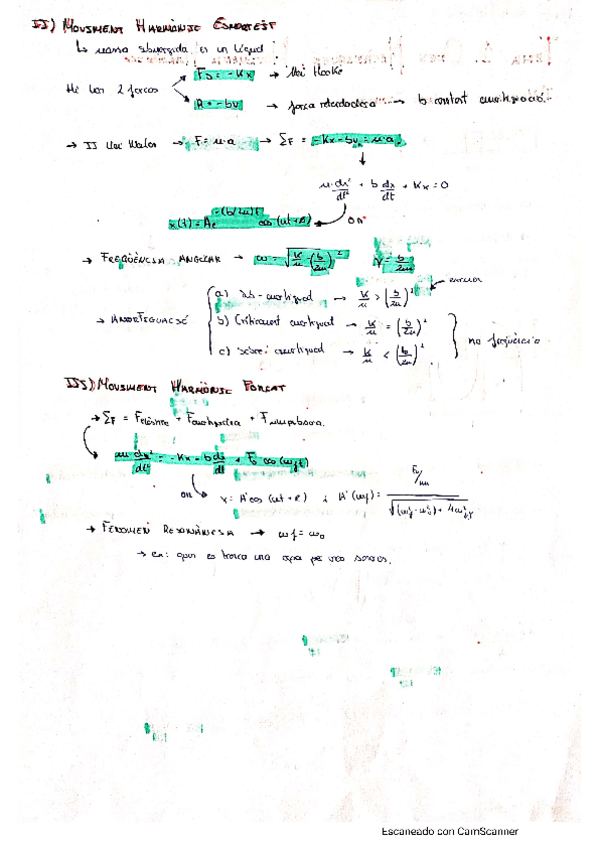 II) MOVIMENT HARMÒNIC ESMORTEÏT
↳ massa submergida en un líquid
Hi han 2 forces
Fs = -Kx → Llei Hooke
R = -bv → força retardadora → b constant amortiguació.
→ II Llei → F = m·a → ΣF = -Kx - bv = m·a
m·dx²/dt² + b dx/dt + Kx = 0
x(t) = Ae^-(b/2m)t cos(ωt+δ) on
→ FREQÜÈNCIA ANGULAR → ω = √(K/m - (b/2m)²) γ = b/2m
a) Sub-amortiguat → K/m > (b/2m)²
→ b) Críticament amortiguat → K/m = (b/2m)²
c) Sobre amortiguat → K/m < (b/2m)² no freqüència
III) MOVIMENT HARMÒNIC FORÇAT
→ ΣF = F + F + F impulsora.
m dx²/dt² = -Kx - b dx/dt + F₀ cos(ωft)
on x = A' cos(ωt+δ) i A'(ωf) = F₀/m / √((ωf² - ω₀²) + 4ωf²γ
→ FENOMEN RESONÀNCIA → ωf = ω₀
→ ex: quan es trenca una copa per
Escaneado con CamScanner